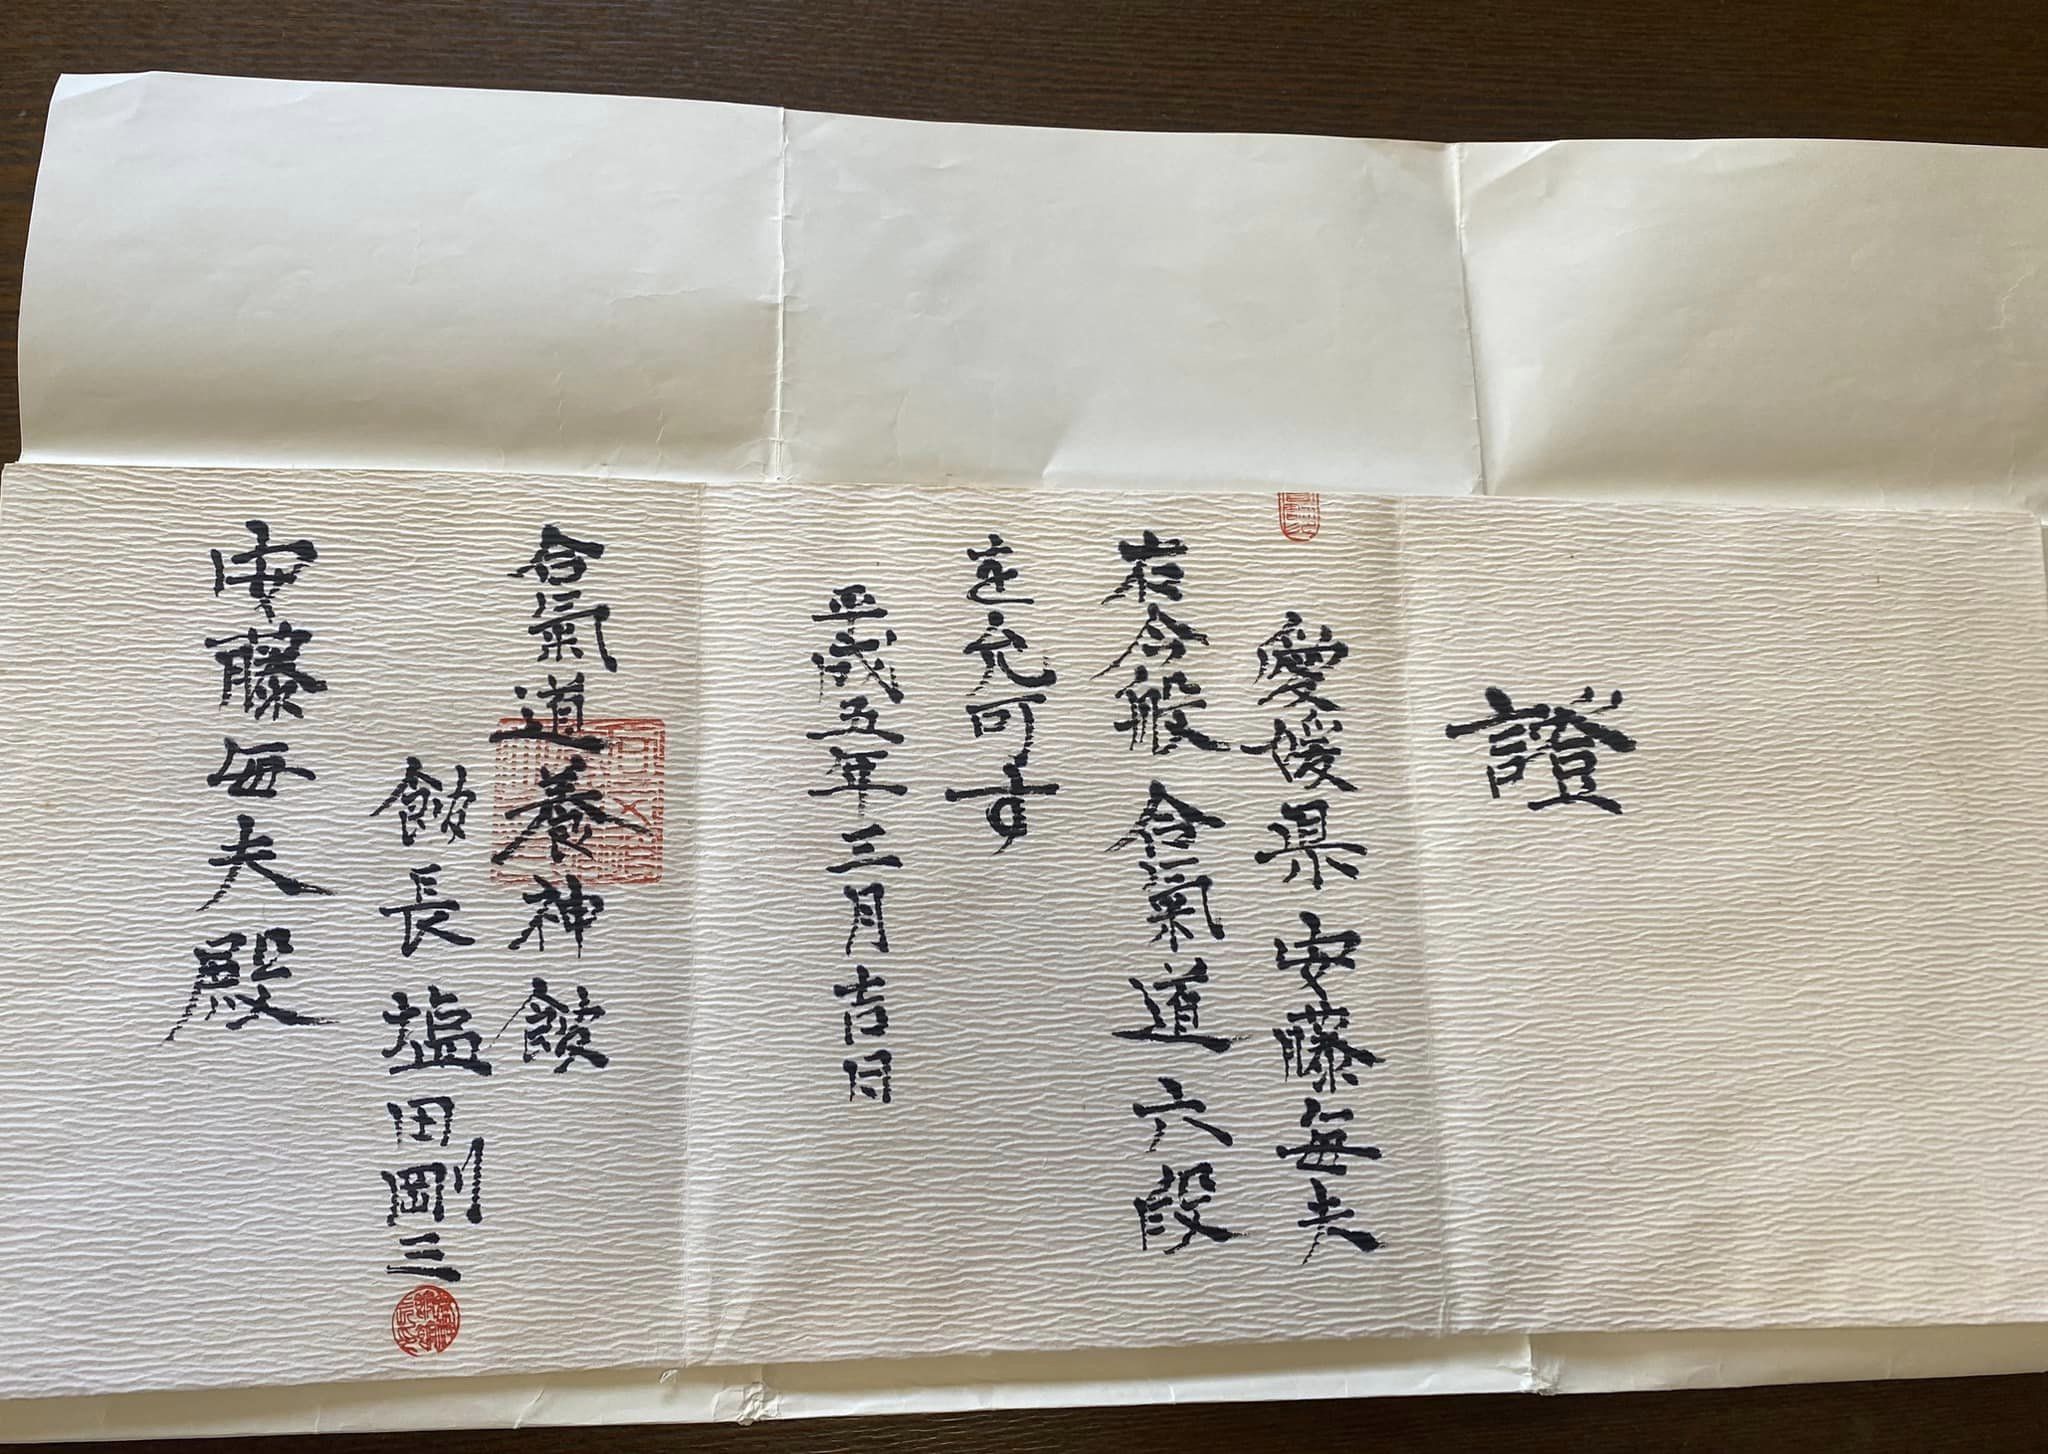 證
愛媛県 安藤毎夫
右今般 合氣道 六段
を允可す
平成五年三月吉日
合氣道養神館
館長 塩田剛三
安藤毎夫殿